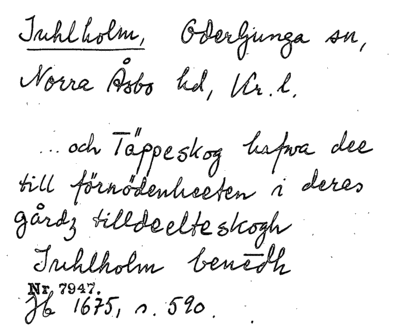 Juhlholm, Oderljunga sn,
Norra Åsbo hd, Kr. l.
... och Täppeskog hafwa dee
till förnödenheeten i deras
gårdz tilldeelte skogh
Juhlholm benēdh
Nr. 7947.
Jb 1675, s. 590.